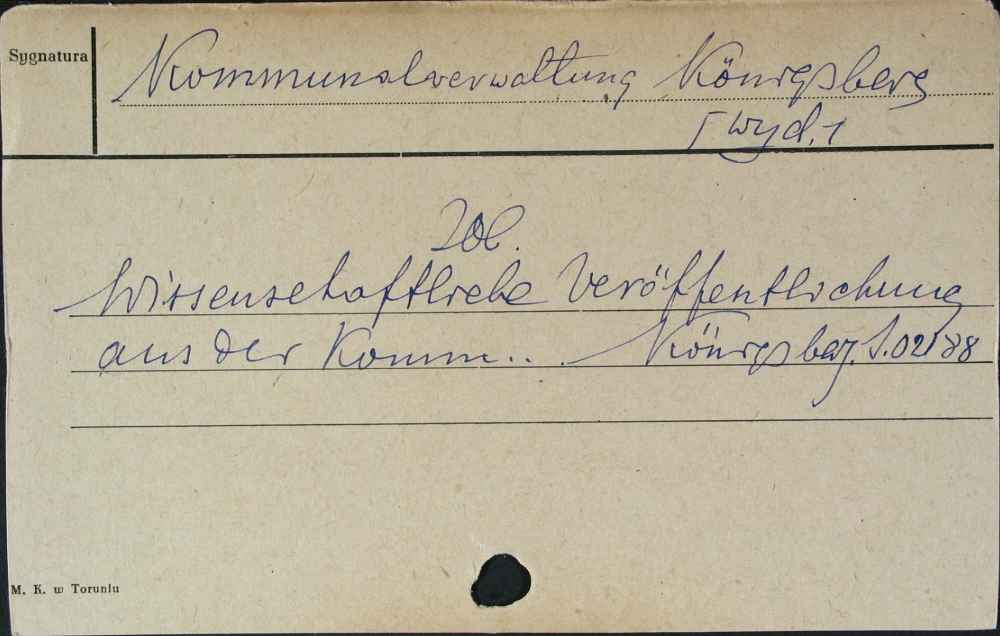 Sygnatura
Kommunalverwaltung Königsberg
[wyd.]
zob.
Wissenschaftliche Veröffentlichung
aus der Komm... Königsberg. S.02188
M. K. w Toruniu